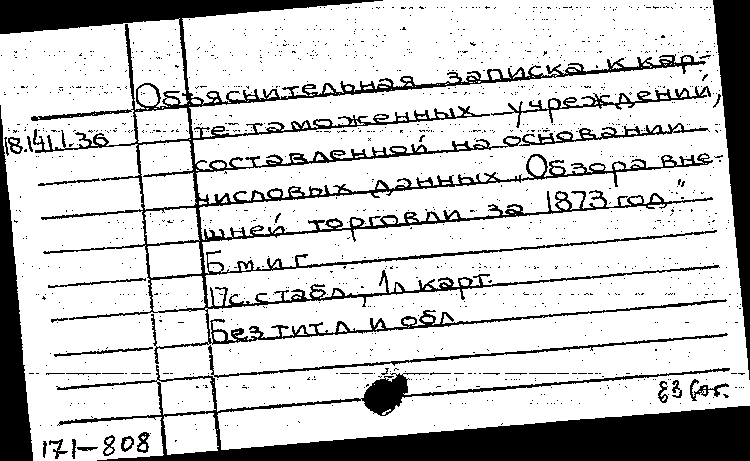 Объяснительная записка к кар-
18.141.1.36
те таможенных учреждений,
составленной на основании
числовых данных „Обзора вне-
шней торговли за 1873 год."
Б.м. и г.
17с. с табл., 1л карт.
Без тит.л. и обл.
171-808